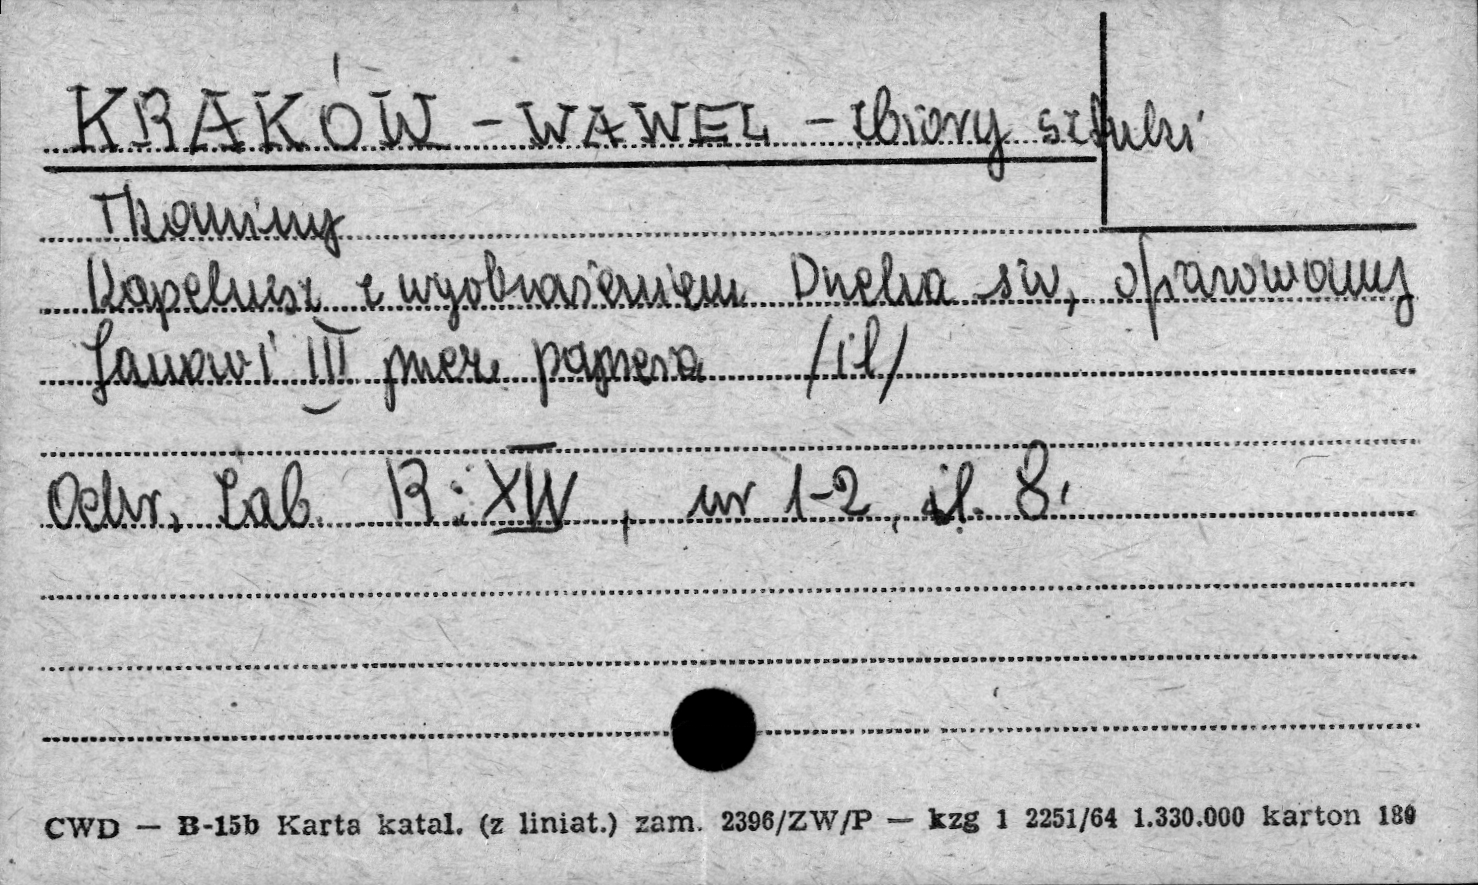 KRAKÓW - WAWEL - zbiory sztuki
Tkaniny
Kapelusz z wyobrażeniem Ducha św, ofiarowany
Janowi III przez papieża /il/
Ochr. Zab. R: XIV, nr 1-2, il. 8.
CWD — B-15b Karta katal. (z liniat.) zam. 2396/ZW/P — kzg 1 2251/64 1.330.000 karton 180